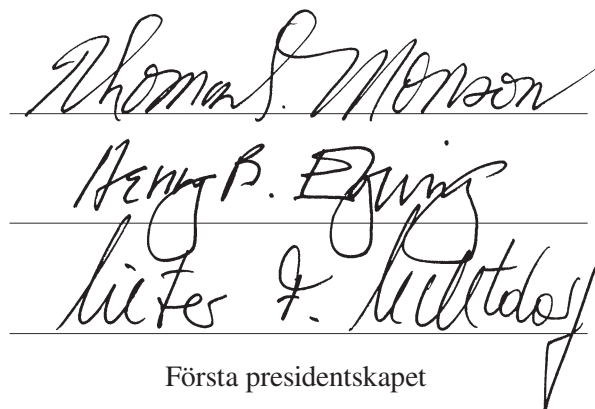 Thomas S. Monson
Henry B. Eyring
Dieter F. Uchtdorf
Första presidentskapet